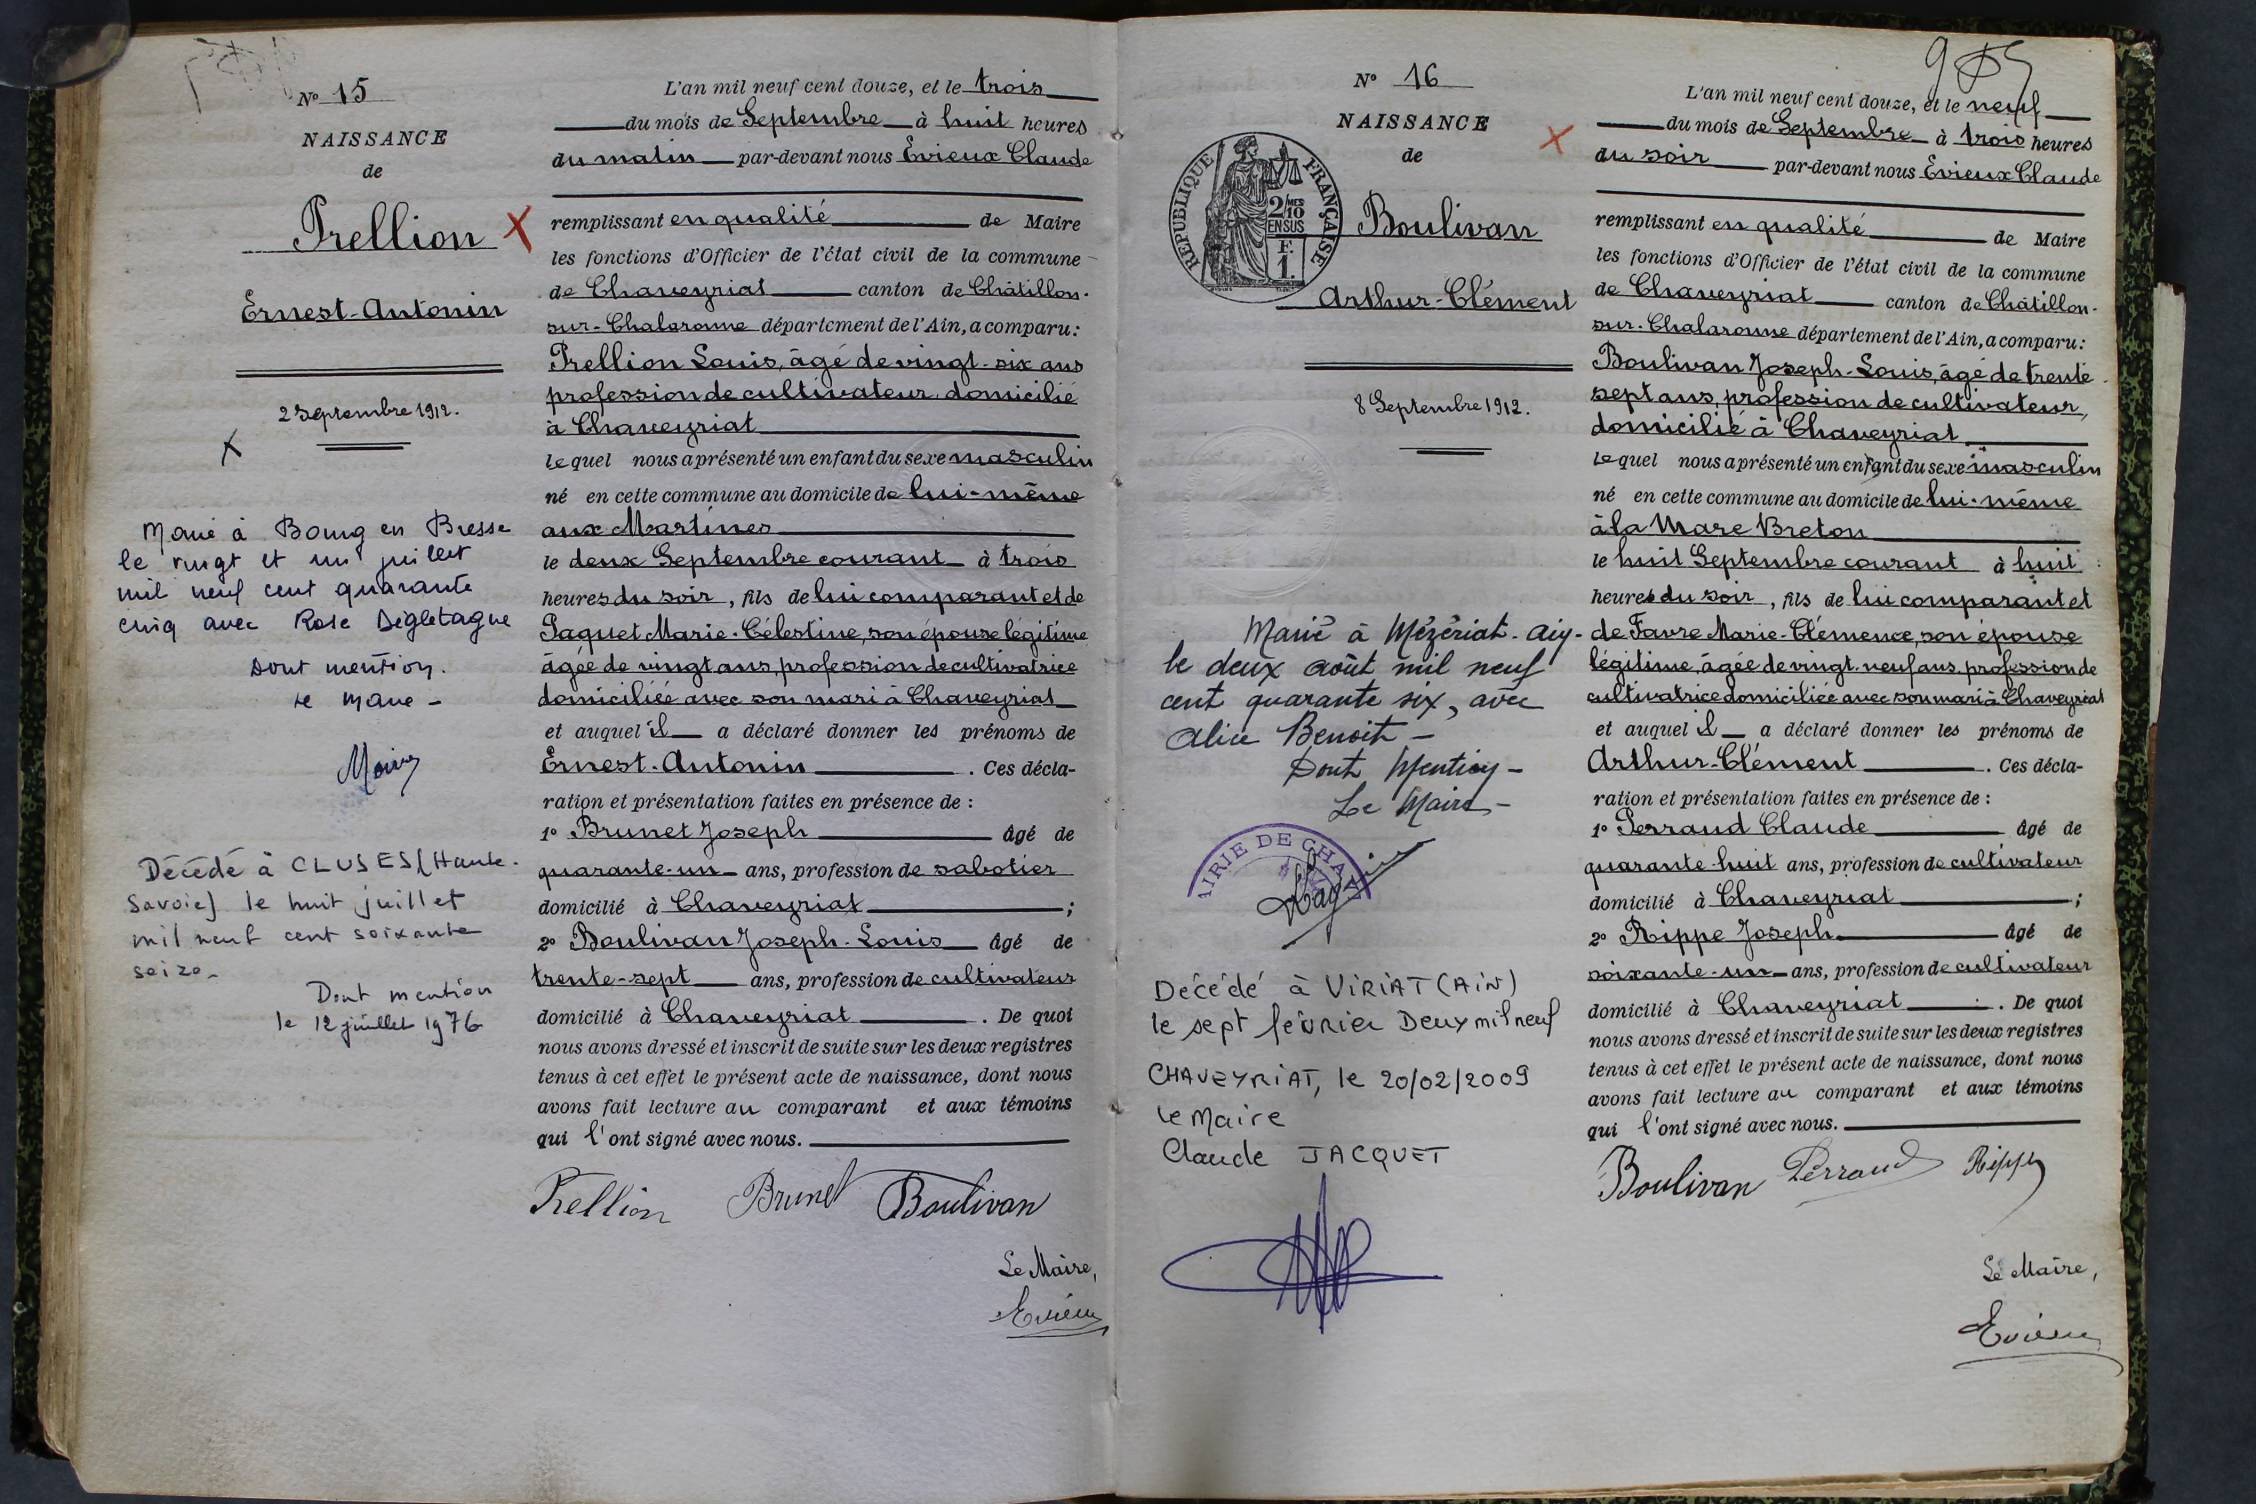 Nº 15
NAISSANCE
de
Prellion
Ernest-Antonin
2 Septembre 1912.
Marié à Bourg en Bresse
le vingt et un juillet
mil neuf cent quarante
cinq avec Rose Dégletagne
Dont mention.
Le Maire -
Décédé à CLUSES (Haute-
Savoie) le huit juillet
mil neuf cent soixante
seize.
Dont mention
le 12 juillet 1976
L'an mil neuf cent douze, et le trois
du mois de Septembre à huit heures
du matin par-devant nous Evieux Claude
remplissant en qualité de Maire
les fonctions d'Officier de l'état civil de la commune
de Chaveyriat canton de Châtillon-
sur-Chalaronne département de l'Ain, a comparu:
Prellion Louis, âgé de vingt-six ans
profession de cultivateur domicilié
à Chaveyriat
lequel nous a présenté un enfant du sexe masculin
né en cette commune au domicile de lui-même
aux Martines
le deux Septembre courant à trois
heures du soir, fils de lui comparant et de
Paquet Marie-Célestine, son épouse légitime
âgée de vingt ans, profession de cultivatrice
domiciliée avec son mari à Chaveyriat
et auquel il a déclaré donner les prénoms de
Ernest-Antonin. Ces décla-
ration et présentation faites en présence de :
1º Brunet Joseph âgé de
quarante-un ans, profession de sabotier
domicilié à Chaveyriat ;
2º Boulivan Joseph-Louis âgé de
trente-sept ans, profession de cultivateur
domicilié à Chaveyriat. De quoi
nous avons dressé et inscrit de suite sur les deux registres
tenus à cet effet le présent acte de naissance, dont nous
avons fait lecture au comparant et aux témoins
qui l'ont signé avec nous.
Prellion Brunet Boulivan
Le Maire,
Evieux
Nº 16
NAISSANCE
de
RÉPUBLIQUE FRANÇAISE
2/10MES
EN SUS
F.
1.
Boulivan
Arthur-Clément
8 Septembre 1912.
Marié à Mézériat-Ain-
le deux août mil neuf
cent quarante six, avec
Alice Benoit -
Dont Mention -
Le Maire -
AIRIE DE CHA
Décédé à VIRIAT (AIN)
le sept février Deux mil neuf
CHAVEYRIAT, le 20/02/2009
Le Maire
Claude JACQUET
L'an mil neuf cent douze, et le neuf
du mois de Septembre à trois heures
du soir par-devant nous Evieux Claude
remplissant en qualité de Maire
les fonctions d'Officier de l'état civil de la commune
de Chaveyriat canton de Châtillon-
sur-Chalaronne département de l'Ain, a comparu:
Boulivan Joseph-Louis, âgé de trente
sept ans, profession de cultivateur,
domicilié à Chaveyriat
lequel nous a présenté un enfant du sexe masculin
né en cette commune au domicile de lui-même
à la Mare Breton
le huit Septembre courant à huit
heures du soir, fils de lui comparant et
de Favre Marie-Clémence, son épouse
légitime, âgée de vingt-neuf ans, profession de
cultivatrice domiciliée avec son mari à Chaveyriat
et auquel il a déclaré donner les prénoms de
Arthur-Clément. Ces décla-
ration et présentation faites en présence de :
1º Perraud Claude âgé de
quarante-huit ans, profession de cultivateur
domicilié à Chaveyriat ;
2º Rippe Joseph âgé de
soixante-un ans, profession de cultivateur
domicilié à Chaveyriat. De quoi
nous avons dressé et inscrit de suite sur les deux registres
tenus à cet effet le présent acte de naissance, dont nous
avons fait lecture au comparant et aux témoins
qui l'ont signé avec nous.
Boulivan Perraud Rippe
Le Maire,
Evieux